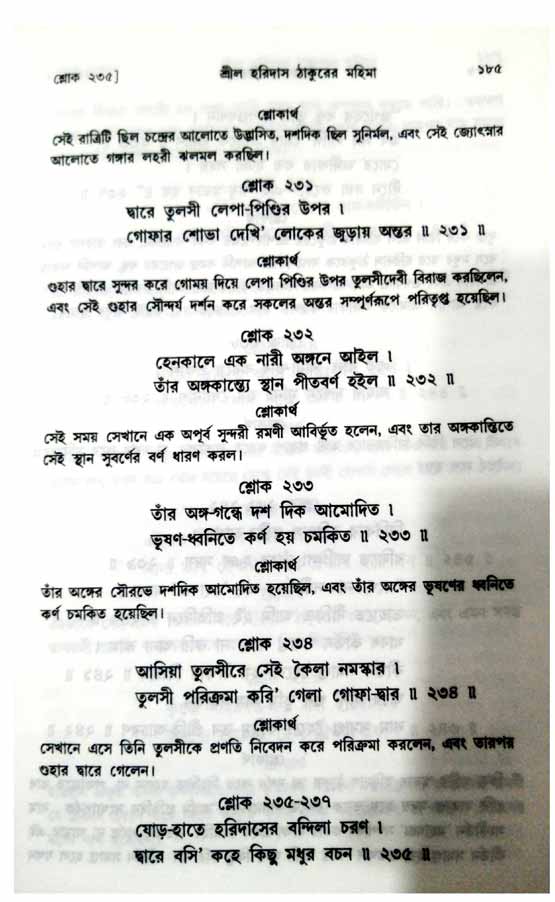 শ্লোক ২৩৫] শ্রীল হরিদাস ঠাকুরের মহিমা ১৮৫
শ্লোকার্থ
সেই রাত্রিটি ছিল চন্দ্রের আলোতে উদ্ভাসিত, দশদিক ছিল সুনির্মল, এবং সেই জ্যোৎস্নার
আলোতে গঙ্গার লহরী ঝলমল করছিল।
শ্লোক ২৩১
দ্বারে তুলসী লেপা-পিণ্ডির উপর ।
গোফার শোভা দেখি' লোকের জুড়ায় অন্তর ॥ ২৩১ ॥
শ্লোকার্থ
গুহার দ্বারে সুন্দর করে গোময় দিয়ে লেপা পিণ্ডির উপর তুলসীদেবী বিরাজ করছিলেন,
এবং সেই গুহার সৌন্দর্য দর্শন করে সকলের অন্তর সম্পূর্ণরূপে পরিতৃপ্ত হয়েছিল।
শ্লোক ২৩২
হেনকালে এক নারী অঙ্গনে আইল ।
তাঁর অঙ্গকান্ত্যে স্থান পীতবর্ণ হইল ॥ ২৩২ ॥
শ্লোকার্থ
সেই সময় সেখানে এক অপূর্ব সুন্দরী রমণী আবির্ভূত হলেন, এবং তার অঙ্গকান্তিতে
সেই স্থান সুবর্ণের বর্ণ ধারণ করল।
শ্লোক ২৩৩
তাঁর অঙ্গ-গন্ধে দশ দিক আমোদিত ।
ভূষণ-ধ্বনিতে কর্ণ হয় চমকিত ॥ ২৩৩ ॥
শ্লোকার্থ
তাঁর অঙ্গের সৌরভে দশদিক আমোদিত হয়েছিল, এবং তাঁর অঙ্গের ভূষণের ধ্বনিতে
কর্ণ চমকিত হয়েছিল।
শ্লোক ২৩৪
আসিয়া তুলসীরে সেই কৈলা নমস্কার ।
তুলসী পরিক্রমা করি' গেলা গোফা-দ্বার ॥ ২৩৪ ॥
শ্লোকার্থ
সেখানে এসে তিনি তুলসীকে প্রণতি নিবেদন করে পরিক্রমা করলেন, এবং তারপর
গুহার দ্বারে গেলেন।
শ্লোক ২৩৫-২৩৭
যোড়-হাতে হরিদাসের বন্দিলা চরণ ।
দ্বারে বসি' কহে কিছু মধুর বচন ॥ ২৩৫ ॥